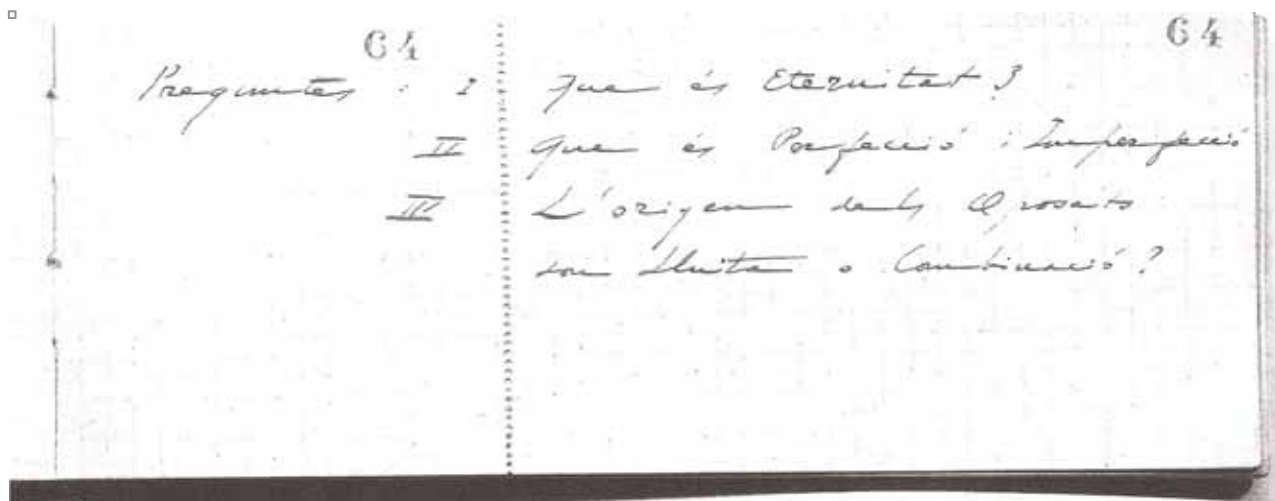 64 64
Preguntes : I Que és Eternitat?
II Que és Perfecció i Imperfecció
III L'origen dels Oposats
son Lluita o Combinació?